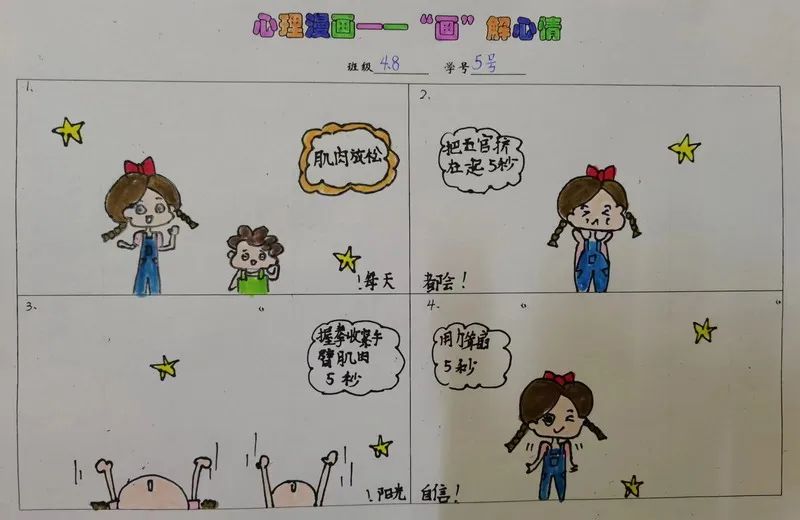 心理漫画——“画”解心情
班级 4.8 学号 5号
1.
肌肉放松
2.
把五官挤
在起5秒
!每天 都会!
3.
握拳收紧手
臂肌肉
5秒
4.
用力耸肩
5秒
!阳光 自信!